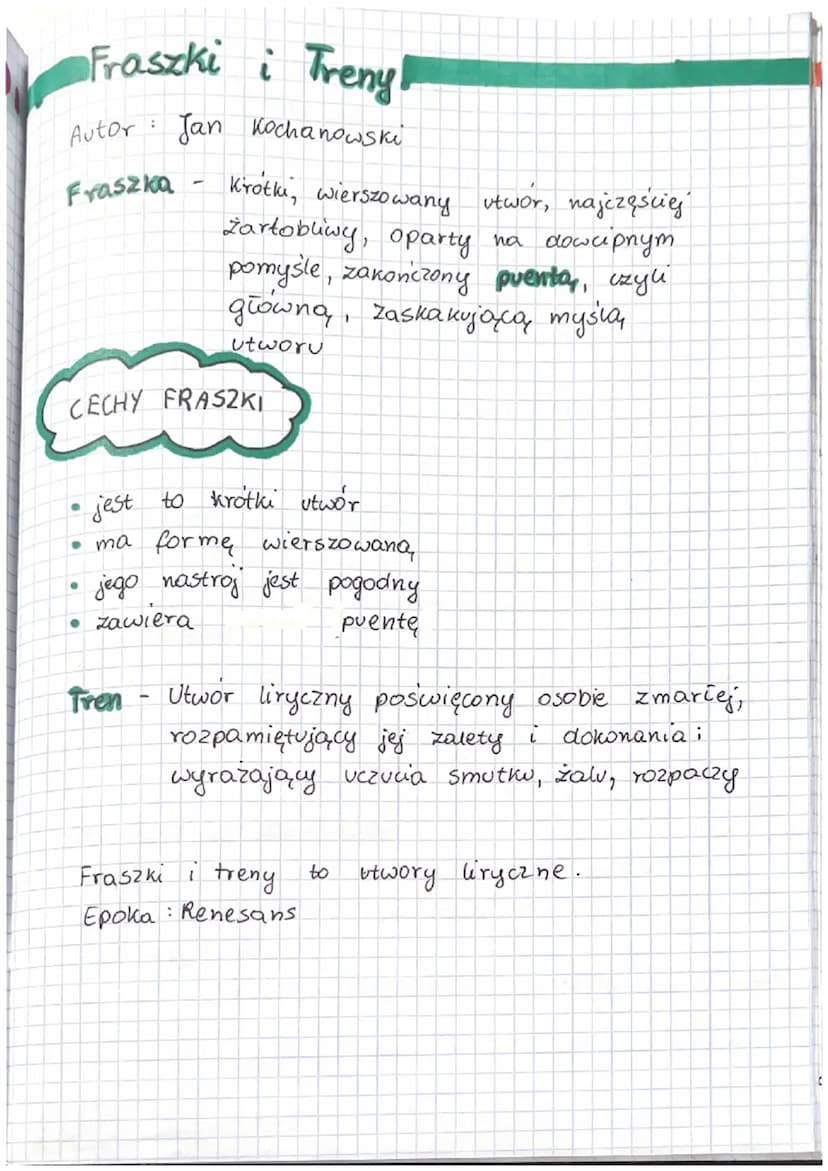 Fraszki i Treny
Autor : Jan Kochanowski
Fraszka - Krótki, wierszowany utwór, najczęściej
żartobliwy, oparty na dowcipnym
pomyśle, zakończony puentą, czyli
główną, zaskakującą myślą
utworu
CECHY FRASZKI
• jest to krótki utwór
• ma formę wierszowaną
• jego nastrój jest pogodny
• zawiera puentę
Tren - Utwór liryczny poświęcony osobie zmarłej,
rozpamiętujący jej zalety i dokonania i
wyrażający uczucia smutku, żalu, rozpaczy
Fraszki i treny to utwory liryczne.
Epoka : Renesans